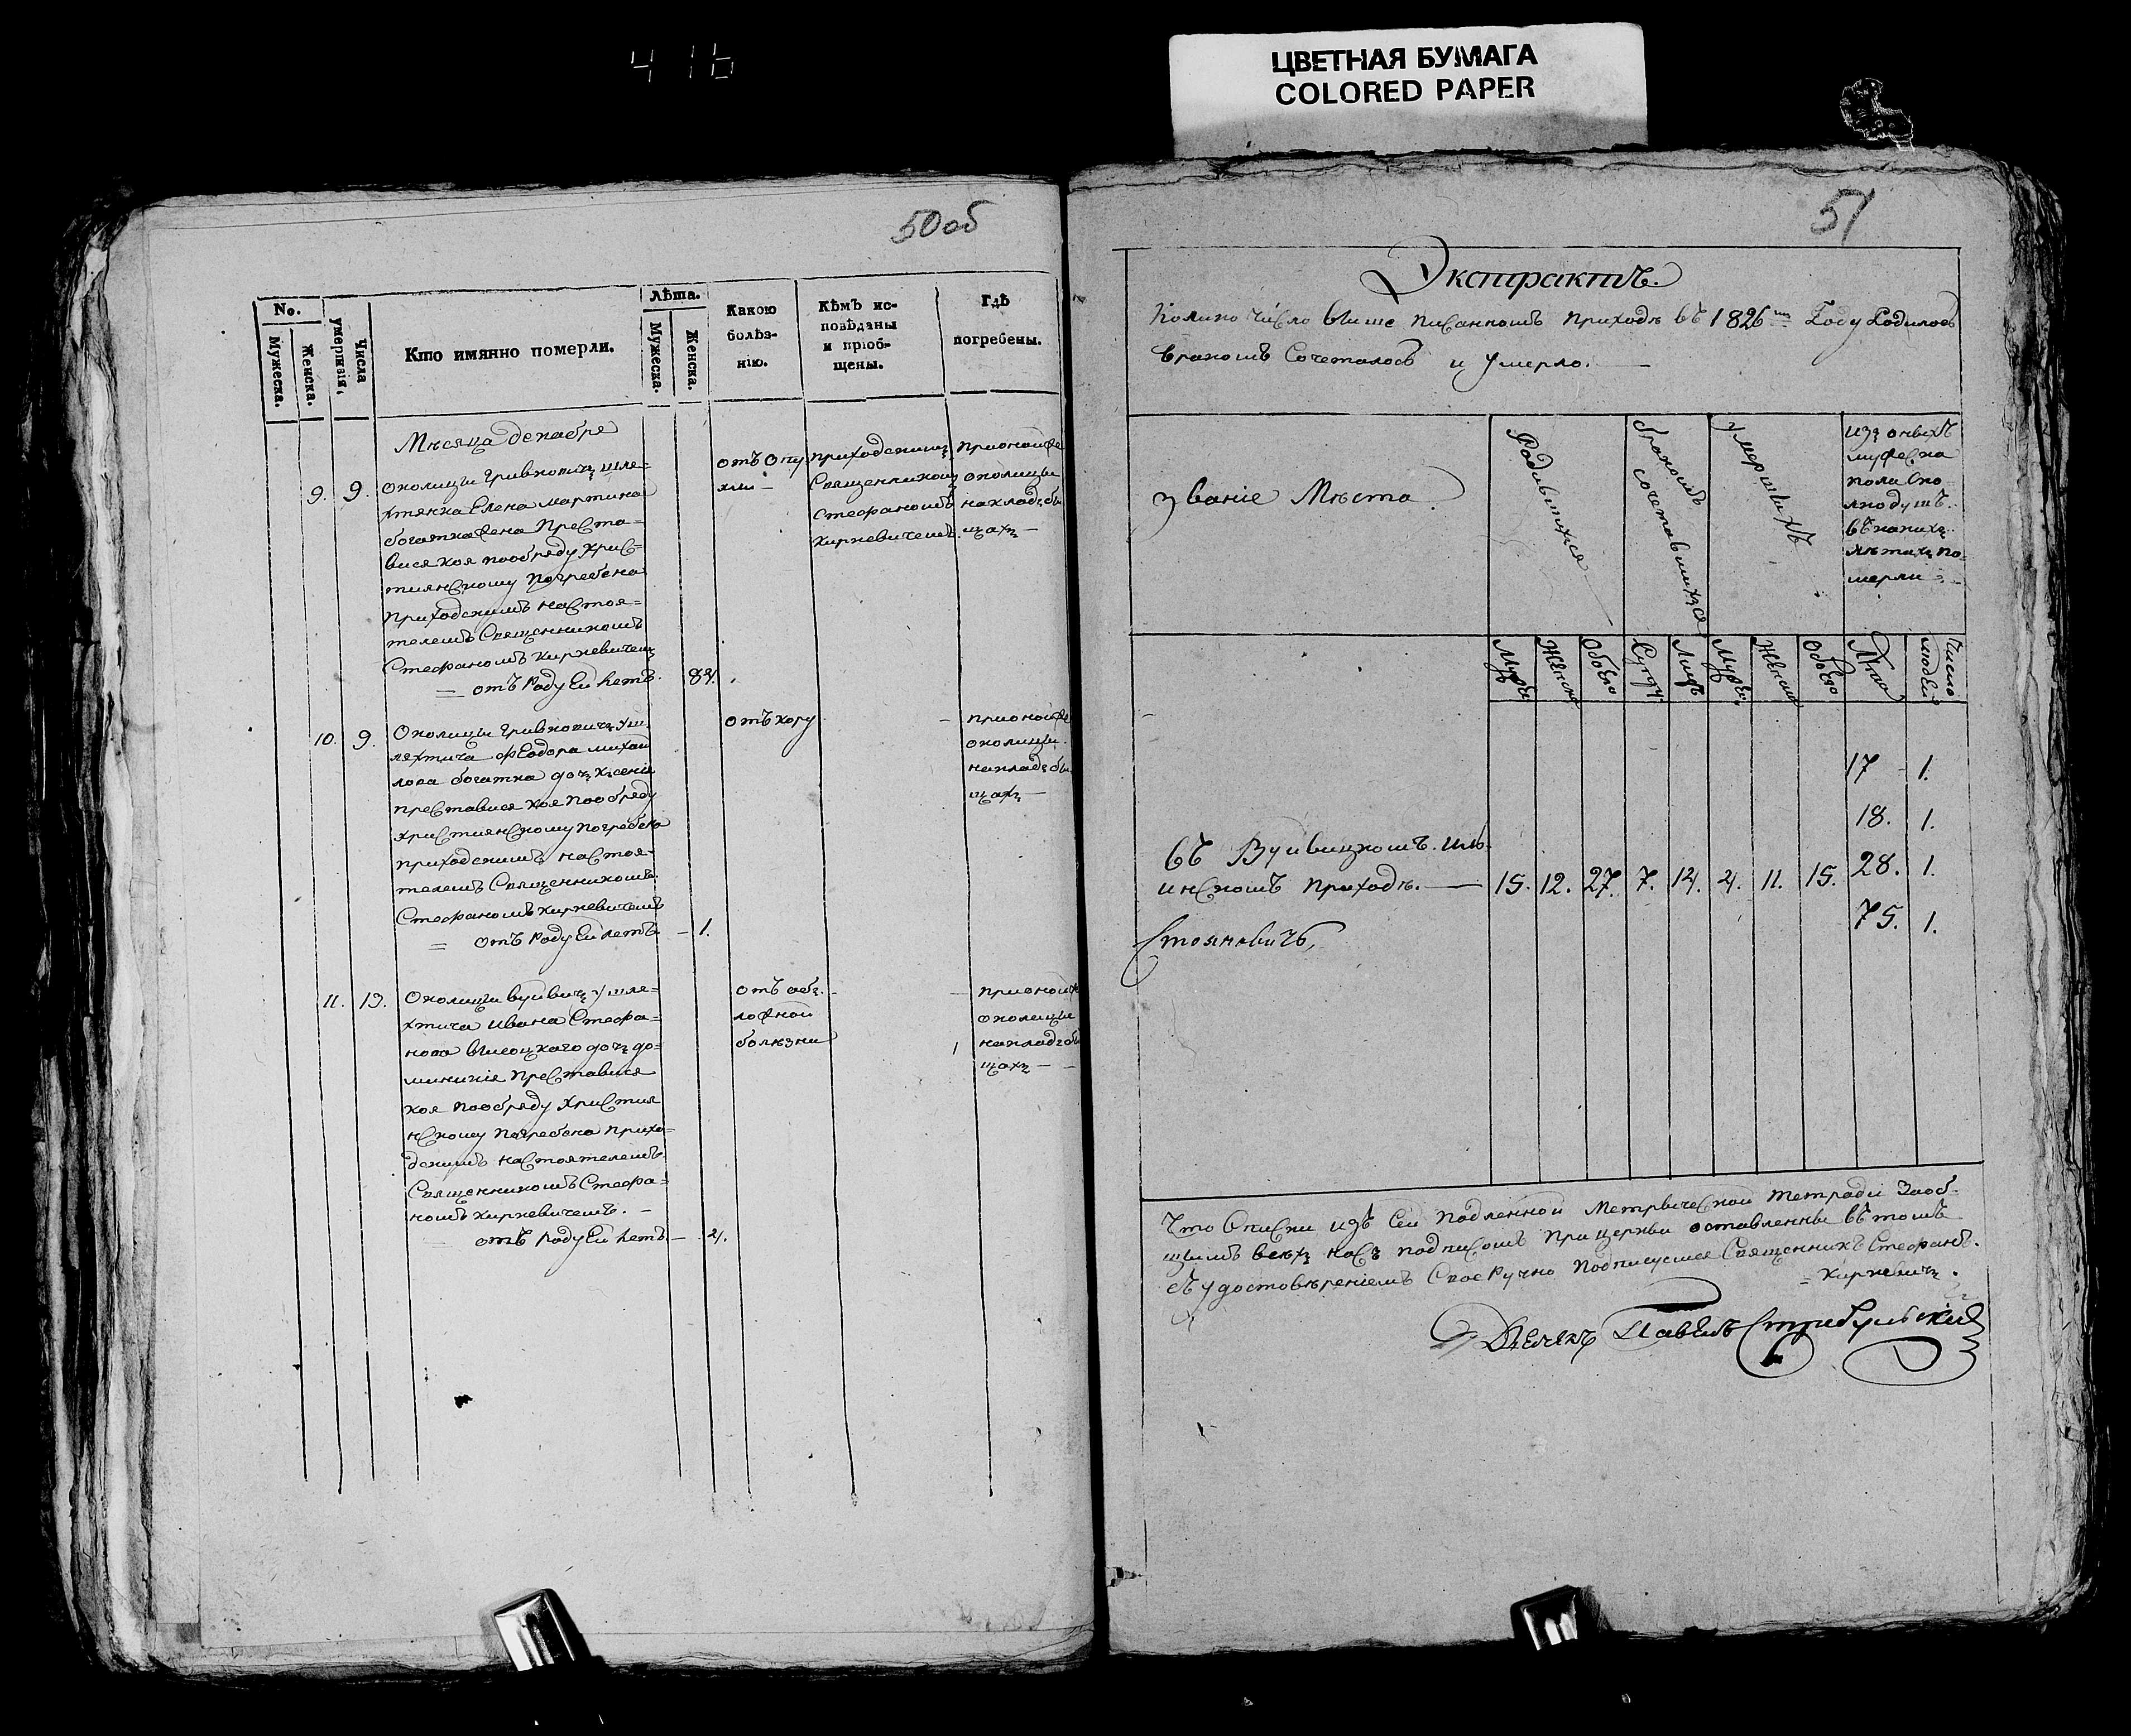 416
ЦВЕТНАЯ БУМАГА
COLORED PAPER
50об
No.
Мужеска.
Женска.
Числа
умершія,
Кто имянно померли.
Лѣта.
Мужеска.
Женска.
Какою
болѣз-
нію.
Кѣмъ ис-
повѣданы
и пріоб-
щены.
Гдѣ
погребены.
Мѣсяца декабре
9. 9.
околицы Гривкович шле-
хтянка Елена Мартина
богатка жена Преста-
вися коя пообряду хрис-
тиянскому Погребена
Приходскимъ настоя-
телемъ Священникомъ
Стефаномъ Киркевичем
отъ роду Ей летъ. 84.
отъ опу
хли
приходским
Священником
Стефаномъ
Киркевичемъ.
при оной же
околицы
на кладбы
щах
10. 9.
Околицы Гривкович у ш
ляхтича Феодора михай
лова богатка доч ксенія
преставися коя пообряду
християнскому погребена
приходскимъ настоя-
телемъ Священникомъ
Стефаномъ Киркевичемъ
= отъ роду Ей летъ - 1.
отъ кору
при оной же
околицы
на кладбы
щах
11. 13.
Околицы вуйвич у шле-
хтича Ивана Стефа-
нова высоцкаго доч до-
миникія Преставися
коя пообряду Христия
нскому Погребена Прихо-
дскимъ настоятелемъ
Священникомъ Стефа-
номъ Киркевичемъ.
отъ роду Ей летъ - 4.
отъ
ложной
болѣзни
при оной ж
околицы
на кладбы
щах
51
Экстрактъ.
Колико число выше писанномъ Приходѣ въ 1826мъ Году Родилось
Бракомъ Сочеталось и умерло.
званіе Мѣста
Родившихся
бракомъ
сочетавшихся
умершихъ
из оныхъ
мужеска
пола ско
лко душъ
въ каких
лѣтах по-
мерли
Мужес
Женска
Обоего
Супру
Лицъ
Мужес
Женска
Обоего
Лѣта
Число
людей
17 1.
18. 1.
въ Вуйвицкомъ. иль-
инскомъ приходѣ. 15. 12. 27. 7. 14. 4. 11. 15. 28. 1.
75. 1.
Стояновичъ,
Что Описки изъ Сей Подленной Метрической тетради Заоб-
щимъ всѣх насъ подписомъ При церкви оставленны въ томъ
съ удостовѣреніемъ Своеручно Подписуемся Священникъ Стефанъ.
Киркевич.
Дьячекъ Павелъ